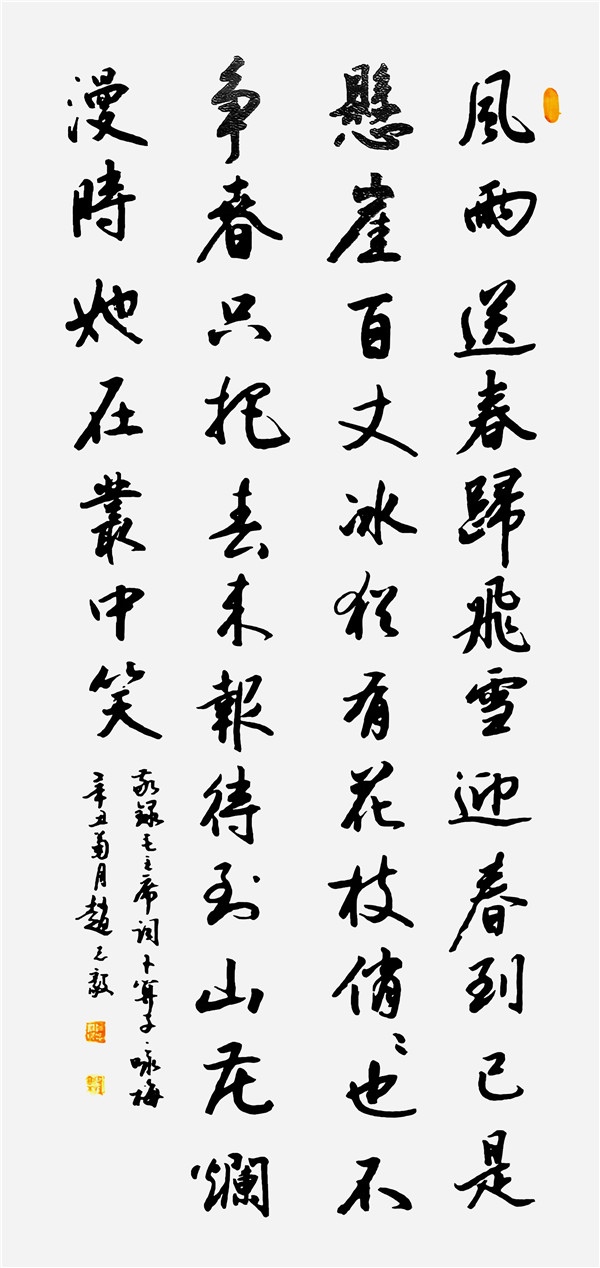 風雨送春歸飛雪迎春到已是
懸崖百丈冰猶有花枝俏〻也不
争春只把春来報待到山花爛
漫時她在叢中笑
敬録毛主席词卜算子·咏梅
辛丑菊月趙毅